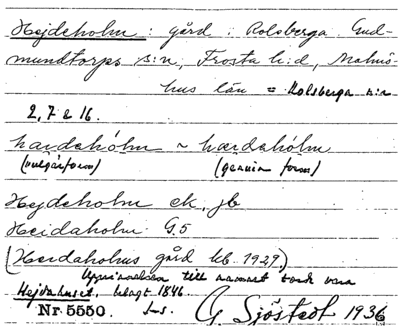 Hejdeholm: gård i Rolsberga. Gud-
mundtorps s:n, Frosta h:d, Malmö-
hus län = Rolsberga n:r
2, 7 & 16.
haidehólm ~ hædehólm
(vulgärform) (genuin form)
Hejdeholm ek, jb
Heidaholm G.5
(Heidaholms gård kb. 1929)
Upprinnelsen till namnet torde vara
Hejdahuset, bebygt 1846.
Nr. 5550. G. Sjöstedt 1936